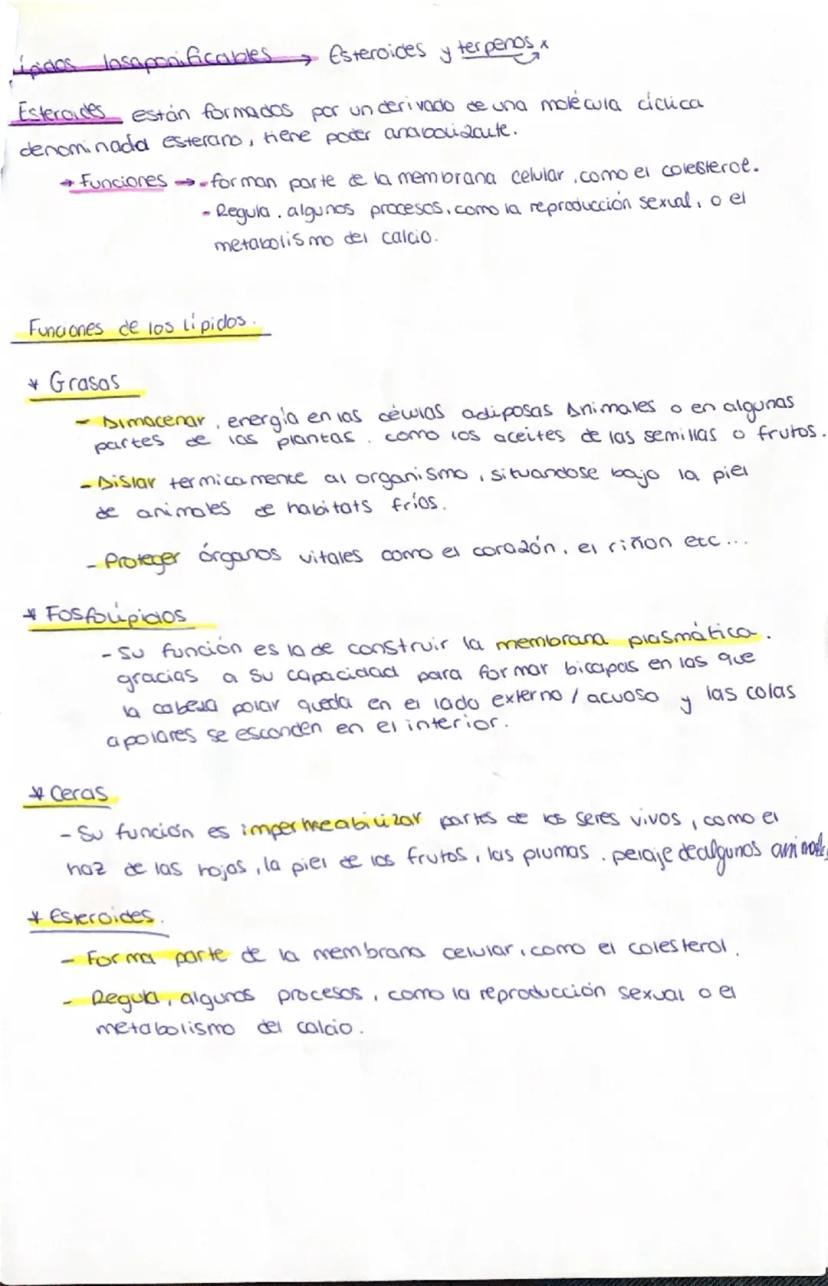 lípidos Insaponificables → Esteroides y terpenos x
Esteroides están formados por un derivado de una molécula cíclica
denominada esterano, tiene poder anabolizante.
→ Funciones → - forman parte de la membrana celular, como el colesterol.
- Regula, algunos procesos, como la reproducción sexual, o el
metabolismo del calcio.
Funciones de los lípidos.
* Grasas
- Almacenar, energía en las células adiposas Animales o en algunas
partes de las plantas, como los aceites de las semillas o frutos.
- Aislar termicamente al organismo, situandose bajo la piel
de animales de habitats fríos.
- Proteger órganos vitales como el corazón, el riñon etc...
* Fosfolípidos
- Su función es la de construir la membrana plasmática.
gracias a su capacidad para formar bicapas en las que
la cabeza polar queda en el lado externo / acuoso y las colas
apolares se esconden en el interior.
* Ceras
- Su función es impermeabilizar partes de los seres vivos, como el
haz de las hojas, la piel de los frutos, las plumas, pelaje de algunos animales
* Esteroides.
- Forma parte de la membrana celular, como el colesterol.
- Regula, algunos procesos, como la reproducción sexual o el
metabolismo del calcio.